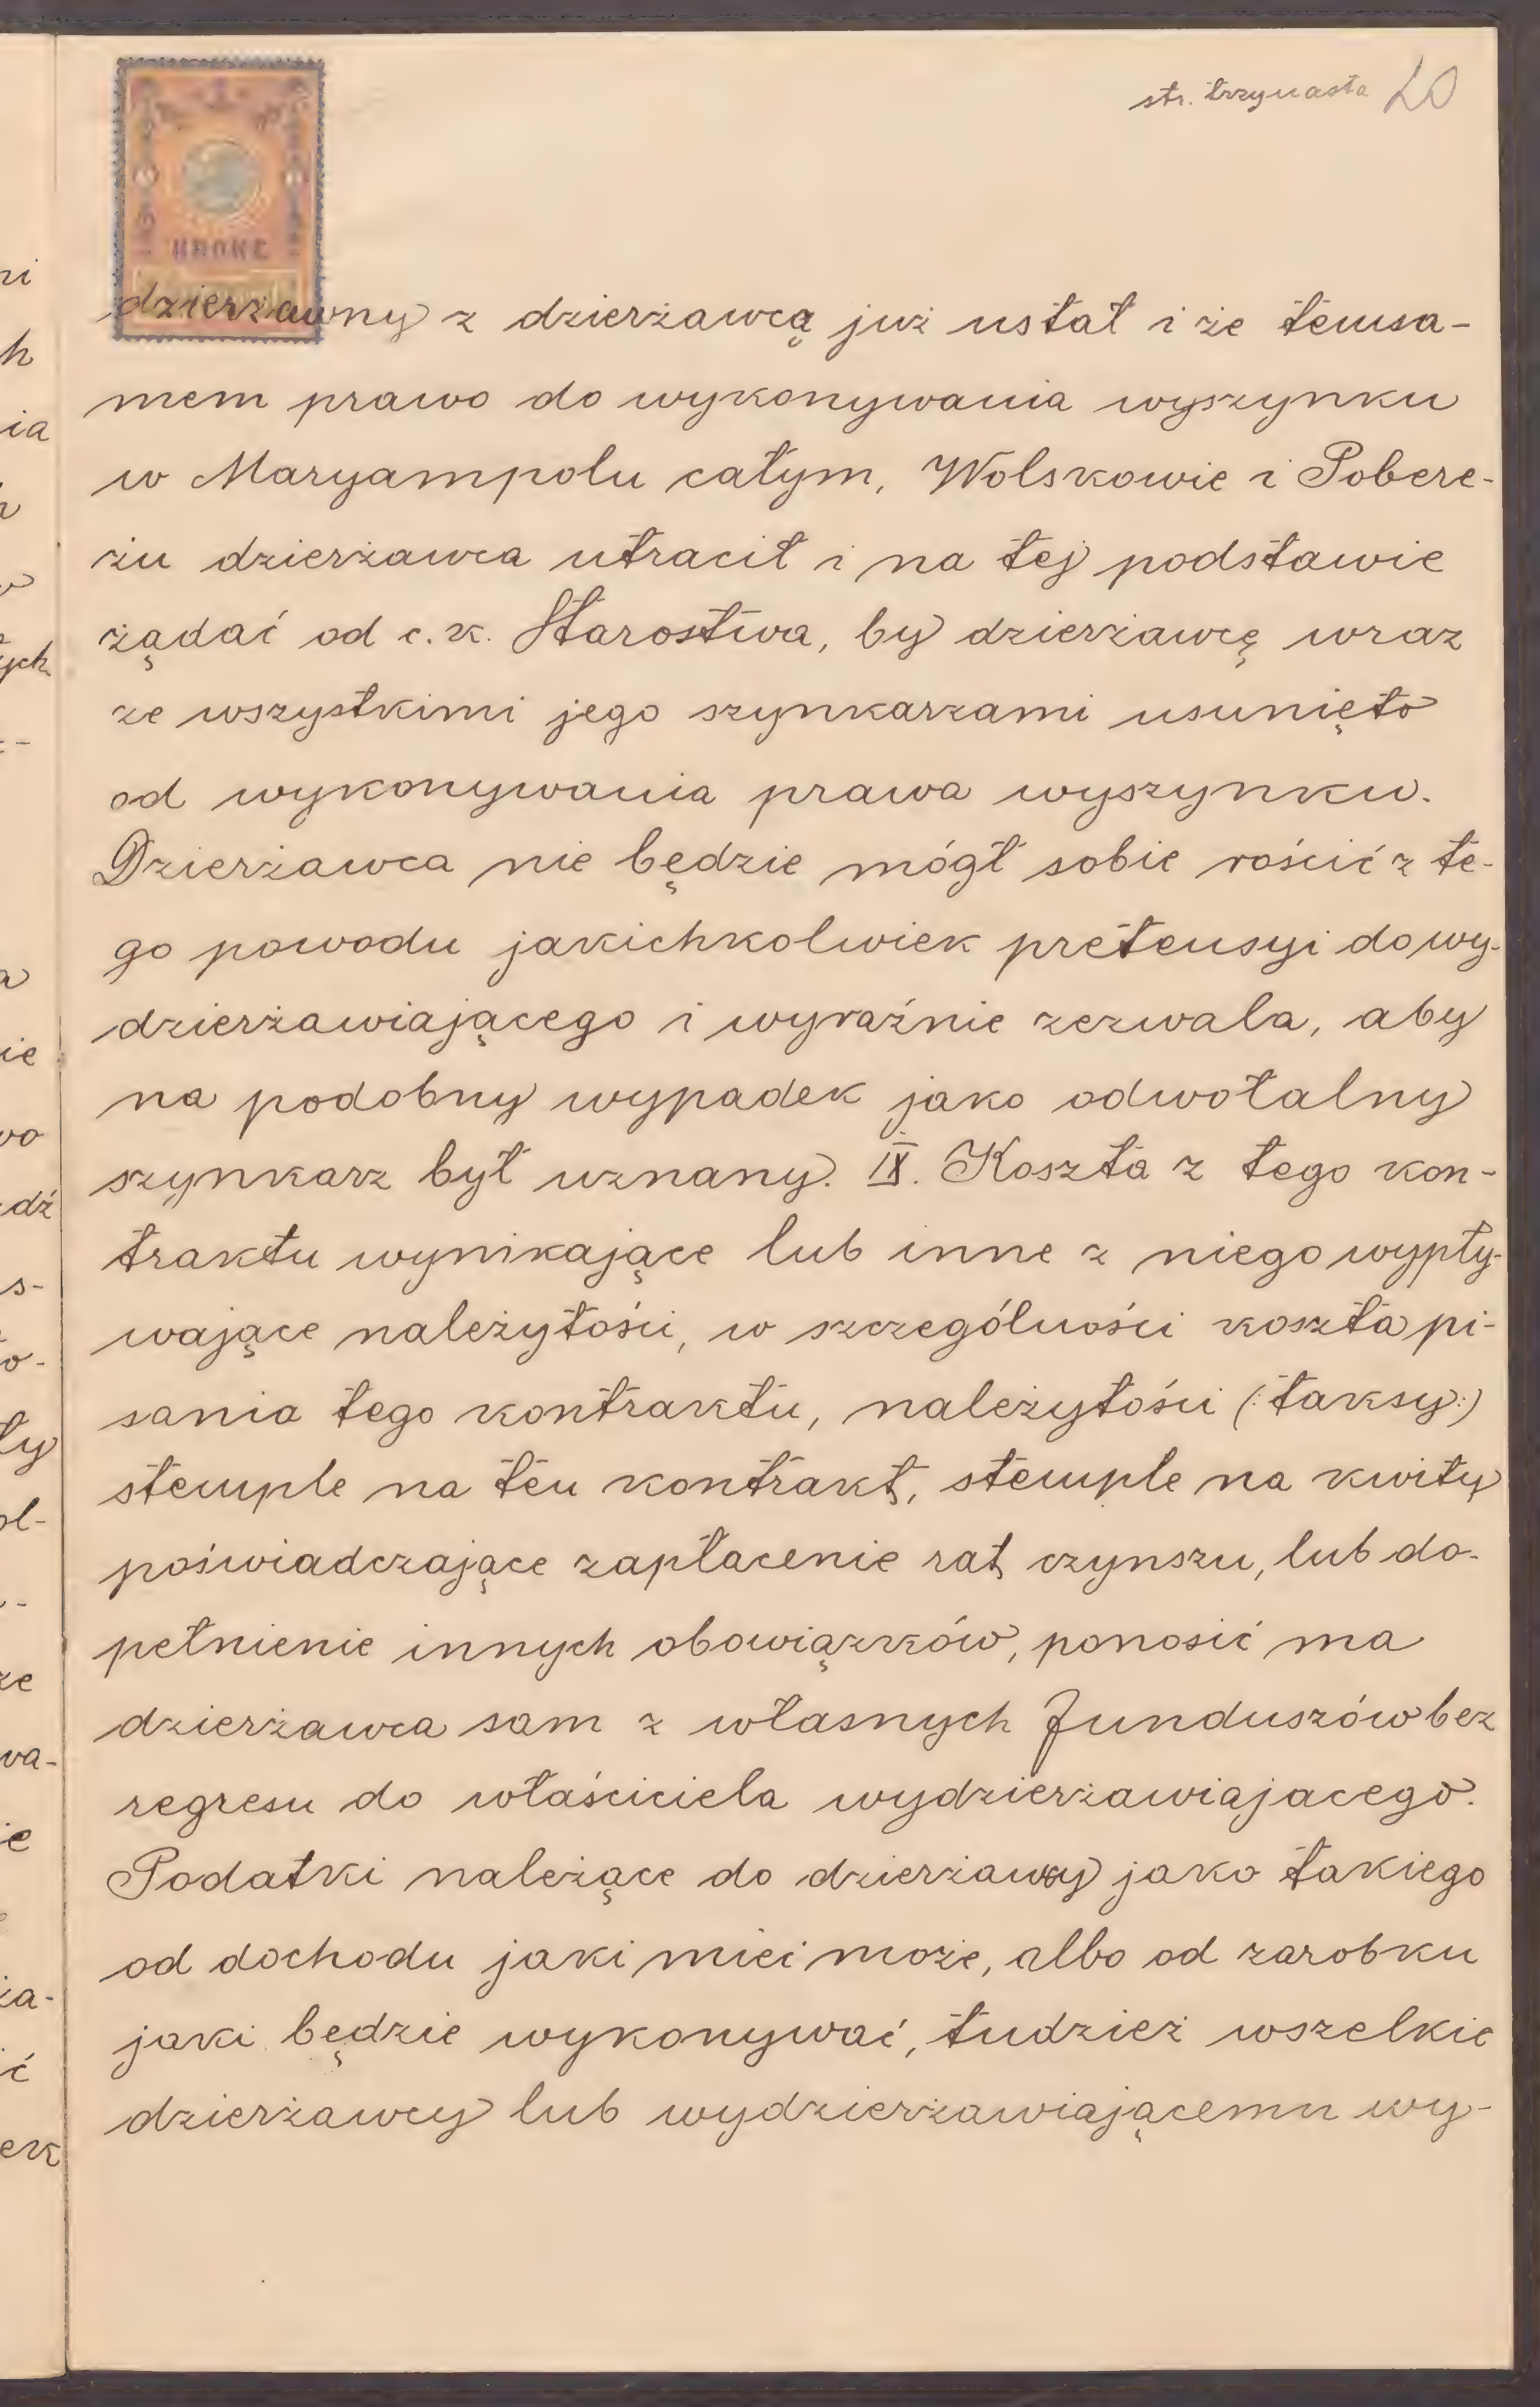 str. trzynasta 20
KRONE
dzierżawny z dzierżawcą już ustał i że temsa-
mem prawo do wykonywania wyszynku
w Maryampolu całym, Wolskowie i Pobere-
żu dzierżawca utracił i na tej podstawie
żądać od c. k. Starostwa, by dzierżawcę wraz
ze wszystkimi jego szynkarzami usunięto
od wykonywania prawa wyszynku.
Dzierżawca nie będzie mógł sobie rościć z te-
go powodu jakichkolwiek pretensyi do wy-
dzierżawiającego i wyraźnie zezwala, aby
na podobny wypadek jako odwołalny
szynkarz był uznany. IX. Koszta z tego kon-
traktu wynikające lub inne z niego wypły-
wające należytości, w szczególności koszta pi-
sania tego kontraktu, należytości (:taksy:)
stemple na ten kontrakt, stemple na kwity
poświadczające zapłacenie rat czynszu, lub do-
pełnienie innych obowiązków, ponosić ma
dzierżawca sam z własnych funduszów bez
regresu do właściciela wydzierżawiajacego.
Podatki należące do dzierżawy jako takiego
od dochodu jaki mieć może, albo od zarobku
jaki będzie wykonywać, tudzież wszelkie
dzierżawcy lub wydzierżawiającemu wy-